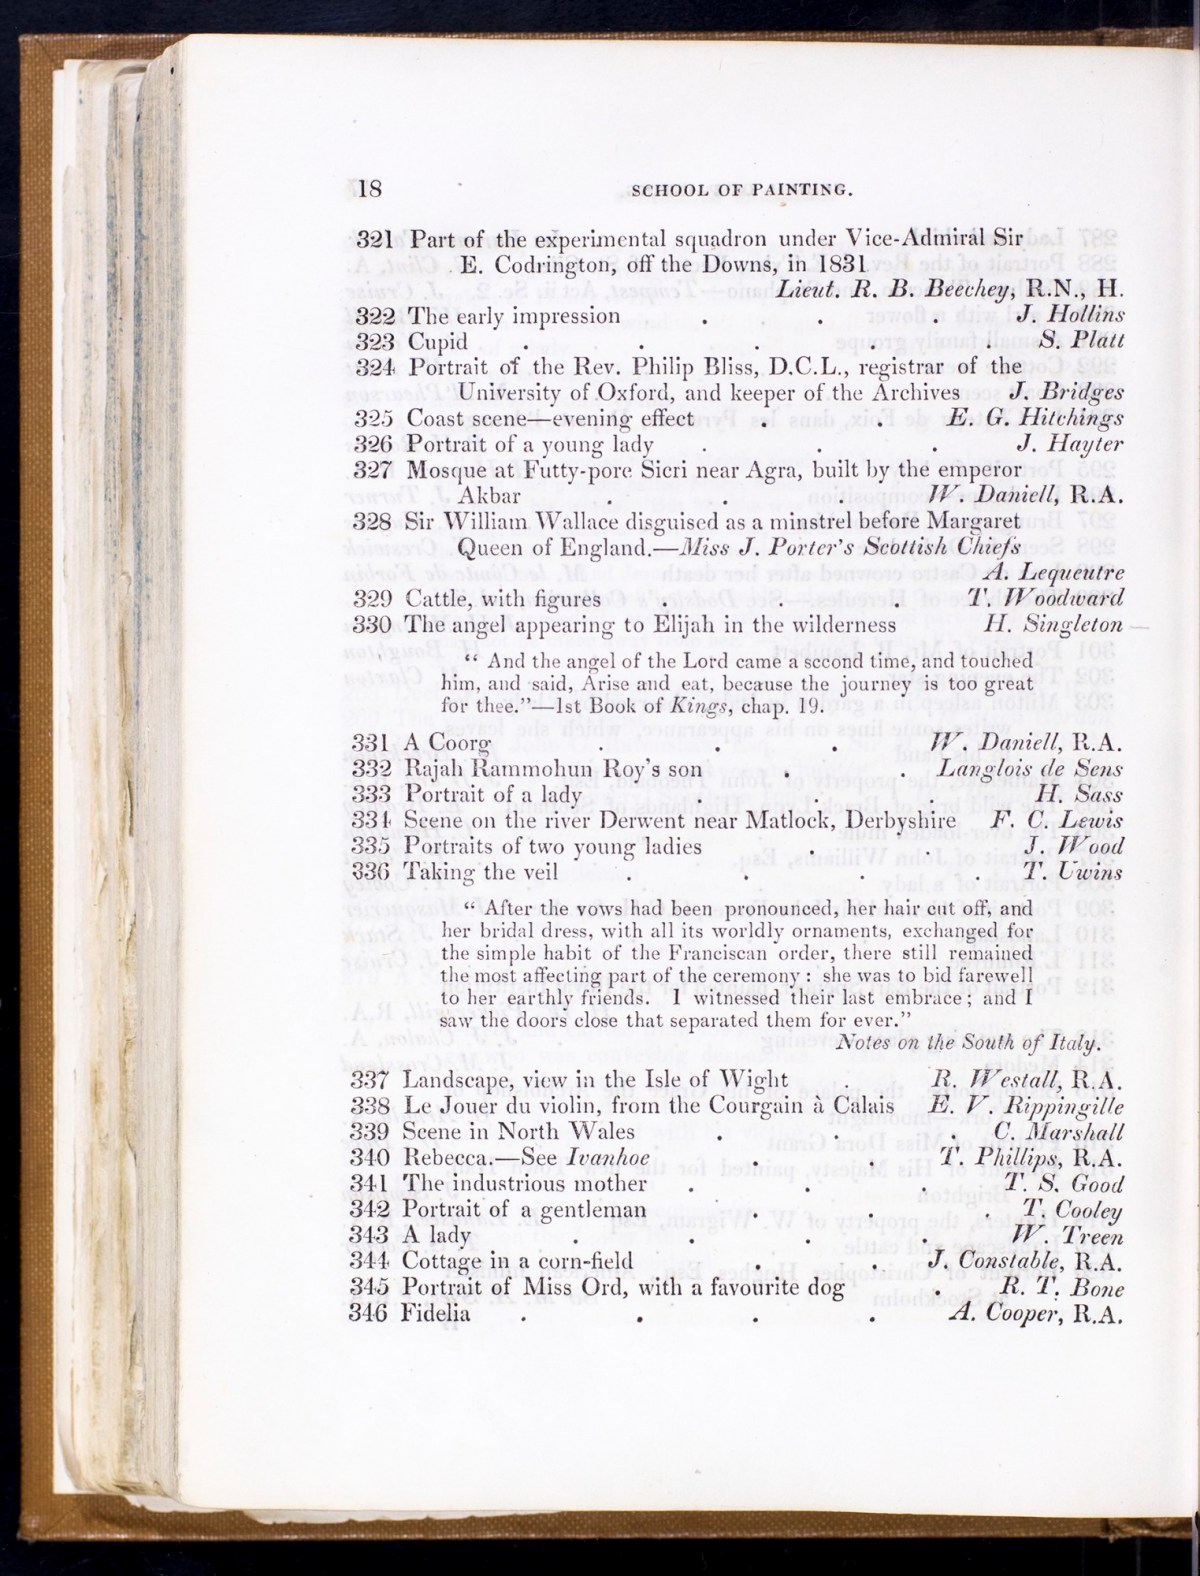 18 SCHOOL OF PAINTING.
321 Part of the experimental squadron under Vice-Admiral Sir
E. Codrington, off the Downs, in 1831
Lieut. R. B. Beechey, R.N., H.
322 The early impression . . . J. Hollins
323 Cupid . . . . . S. Platt
324 Portrait of the Rev. Philip Bliss, D.C.L., registrar of the
University of Oxford, and keeper of the Archives J. Bridges
325 Coast scene—evening effect . . E. G. Hitchings
326 Portrait of a young lady . . . J. Hayter
327 Mosque at Futty-pore Sicri near Agra, built by the emperor
Akbar . . . W. Daniell, R.A.
328 Sir William Wallace disguised as a minstrel before Margaret
Queen of England.—Miss J. Porter's Scottish Chiefs
A. Lequeutre
329 Cattle, with figures . . . T. Woodward
330 The angel appearing to Elijah in the wilderness H. Singleton
“ And the angel of the Lord came a second time, and touched
him, and said, Arise and eat, because the journey is too great
for thee.”—1st Book of Kings, chap. 19.
331 A Coorg . . . W. Daniell, R.A.
332 Rajah Rammohun Roy's son . . Langlois de Sens
333 Portrait of a lady . . . H. Sass
334 Scene on the river Derwent near Matlock, Derbyshire F. C. Lewis
335 Portraits of two young ladies . . J. Wood
336 Taking the veil . . . . T. Uwins
“ After the vows had been pronounced, her hair cut off, and
her bridal dress, with all its worldly ornaments, exchanged for
the simple habit of the Franciscan order, there still remained
the most affecting part of the ceremony : she was to bid farewell
to her earthly friends. I witnessed their last embrace; and I
saw the doors close that separated them for ever.”
Notes on the South of Italy.
337 Landscape, view in the Isle of Wight . R. Westall, R.A.
338 Le Jouer du violin, from the Courgain à Calais E. V. Rippingille
339 Scene in North Wales . . . C. Marshall
340 Rebecca.—See Ivanhoe . . T. Phillips, R.A.
341 The industrious mother . . . T. S. Good
342 Portrait of a gentleman . . . T. Cooley
343 A lady . . . . W. Treen
344 Cottage in a corn-field . . J. Constable, R.A.
345 Portrait of Miss Ord, with a favourite dog . R. T. Bone
346 Fidelia . . . . A. Cooper, R.A.